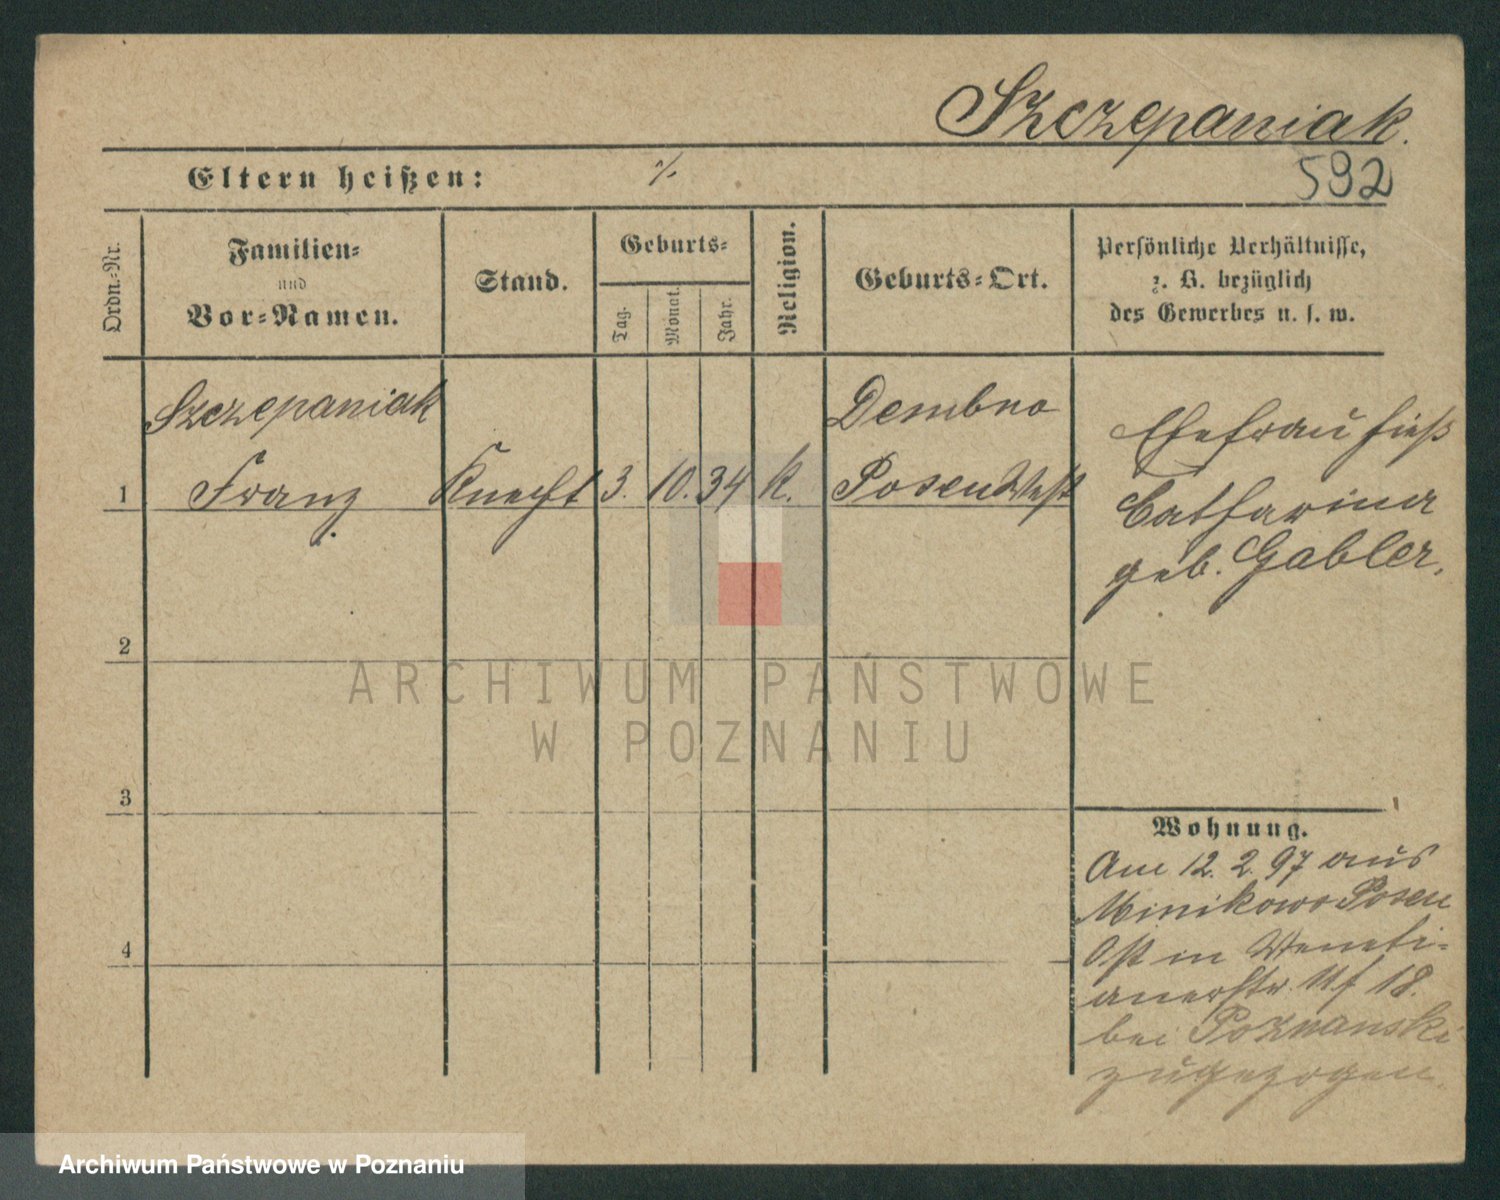 Szczepaniak.
592
Eltern heißen: ⁒
Ordn.-Nr.
Familien-
und
Vor-Namen.
Stand.
Geburts-
Tag.
Monat.
Jahr.
Religion.
Geburts-Ort.
Persönliche Verhältnisse,
z. B. bezüglich
des Gewerbes u. s. w.
Szczepaniak
Dembno
1 Franz Knecht 3. 10. 34 k. Posen West
Ehefrau hieß
Catharina
geb. Gabler.
2
3
4
Wohnung.
Am 12. 2. 97 aus
Minikowo Posen
Ost in Veneti-
anerstr. 18.
bei Poznanski
zugezogen.
ARCHIWUM PAŃSTWOWE
W POZNANIU
Archiwum Państwowe w Poznaniu